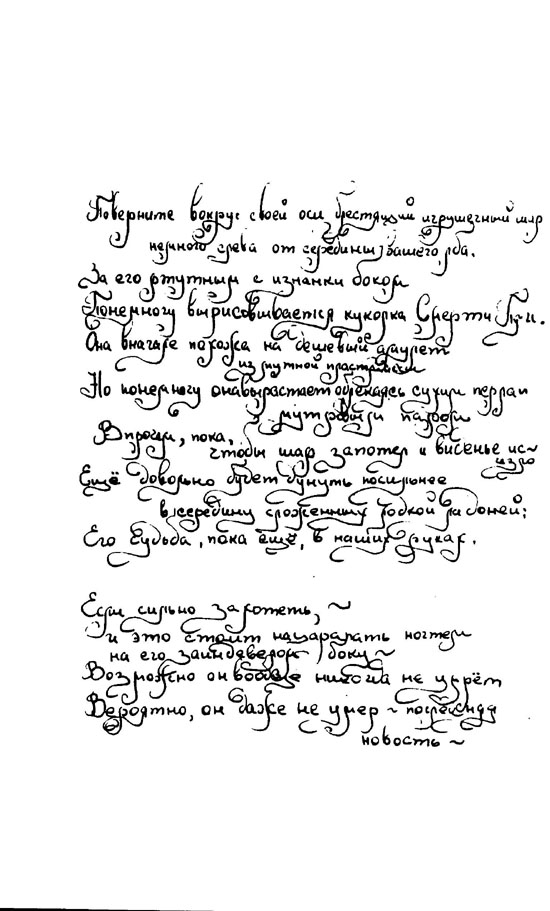 Поверните вокруг своей оси блестящий игрушечный шар
немного слева от середины вашего лба.
За его ртутным с изнанки боком
Понемногу вырисовывается куколка Смерти
Она вначале похожа на дешевый амулет
из мутной пластмассы
Но понемногу она вырастает сухим
Впрочем, пока,
чтобы шар запотел и
Ещё довольно будет дунуть посильнее
в середину сложенных лодкой ладоней:
Его судьба, пока ещё, в наших руках.
Если сильно захотеть, ~
и это стоит нацарапать ногтем
на его заиндевелом боку ~
Возможно он вообще никогда не умрёт
Вероятно, он даже не умер ~ последняя
новость ~